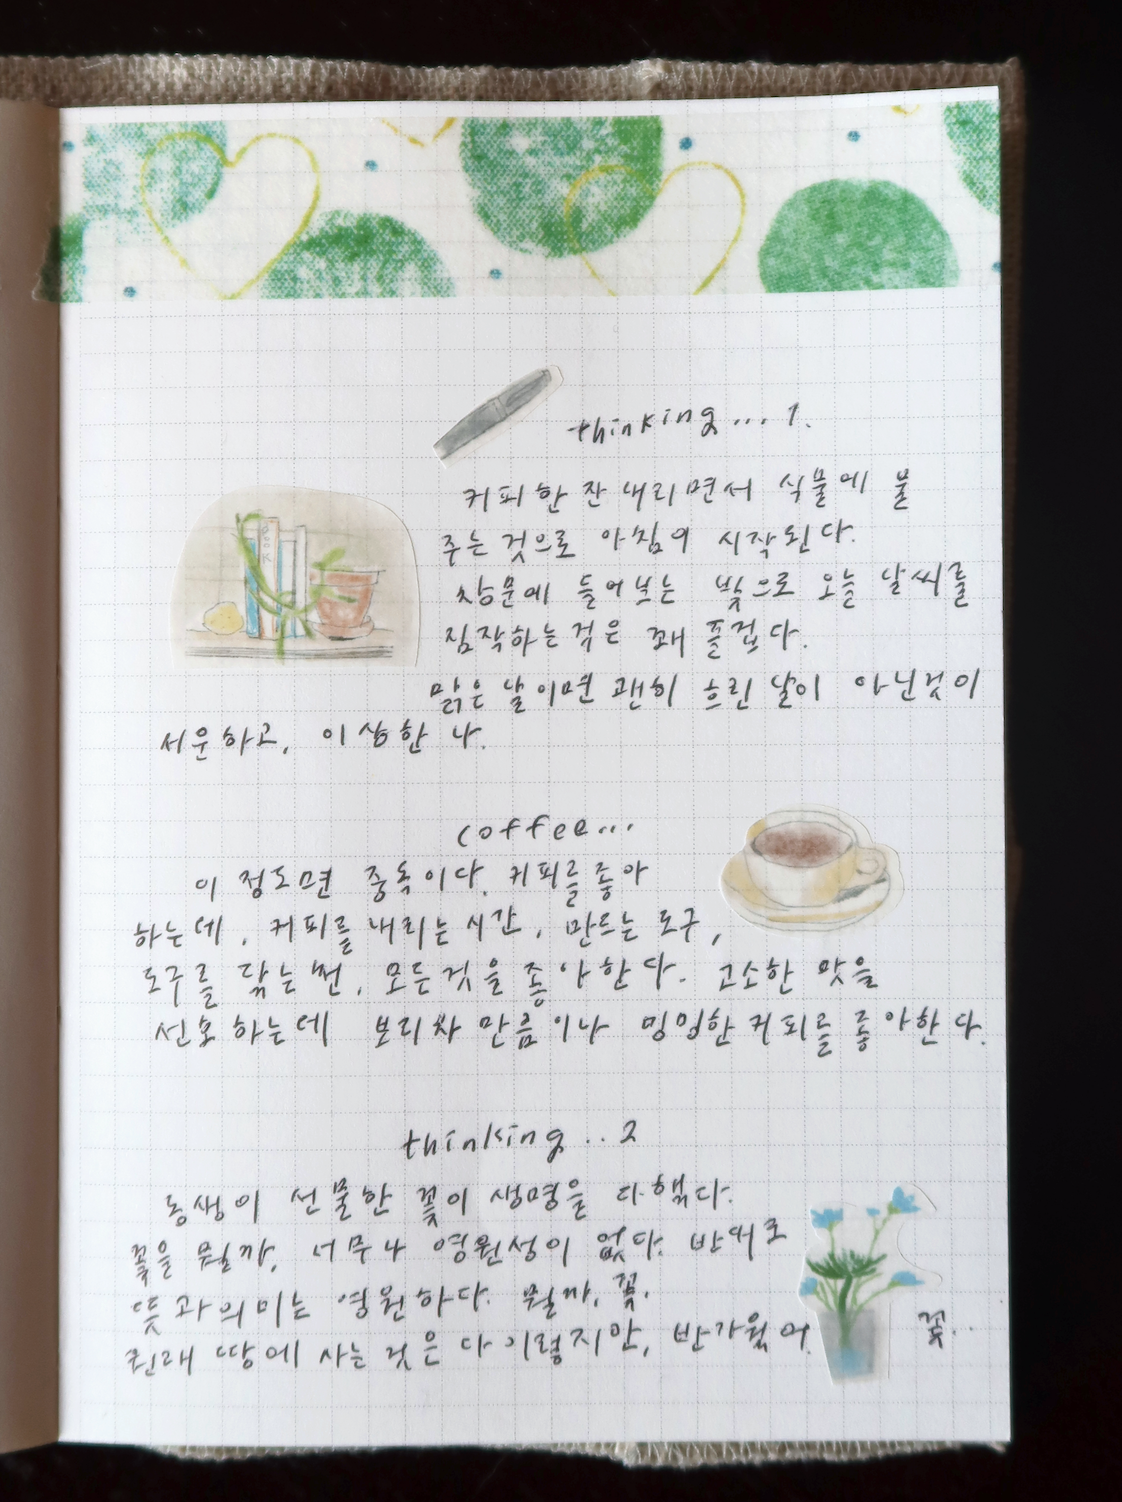 thinking... 1.
커피 한 잔 내리면서 식물에 물
주는 것으로 아침이 시작된다.
창문에 들어보는 빛으로 오늘 날씨를
짐작하는 것은 꽤 즐겁다.
맑은 날이면 괜히 흐린 날이 아닌것이
서운하고, 이상한 나.
coffee...
이 정도면 중독이다. 커피를 좋아
하는데, 커피를 내리는 시간, 만드는 도구,
도구를 닦는 천, 모든것을 좋아한다. 고소한 맛을
선호하는데 보리차 만큼이나 밍밍한 커피를 좋아한다.
thinking.. 2
동생이 선물한 꽃이 생명을 다했다.
꽃은 뭘까, 너무나 영원성이 없다. 반대로
뜻과 의미는 영원하다. 뭘까, 꽃.
원래 땅에 사는 것은 다 이렇지만, 반가웠어. 꽃...